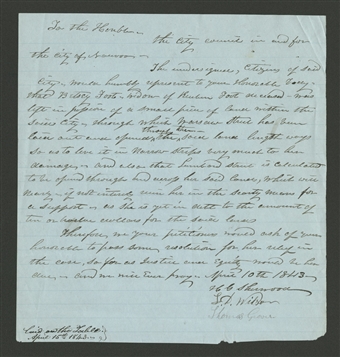 To the Honble
the City council in and for
the City of
The undersigned, Citizens of said
City would humbly represent to your Honorable body
that Betsey Foot, widow of Reuben Foot deceased was
left in possession of a small piece of land within the
said City, through which Parson Street has
been and opened through the said land length ways
so as to leave it in Narrow Strips very much to her
damage and also that street is calculated
to be opened through said land, which will
nearly if not intirely ruin her in the scanty means for
a support as she is yet in debt to the amount of
ten or twelve dollars for the said land
Therefore, we your petitioners would ask of your
honorable to pass some resolution for her relief in
the case, so far as Justice and Equity would to her
due and we will Ever pray April 10th 1843
H G Sherwood
Wilson
Thomas
Laid on the Table
April 15th 1843